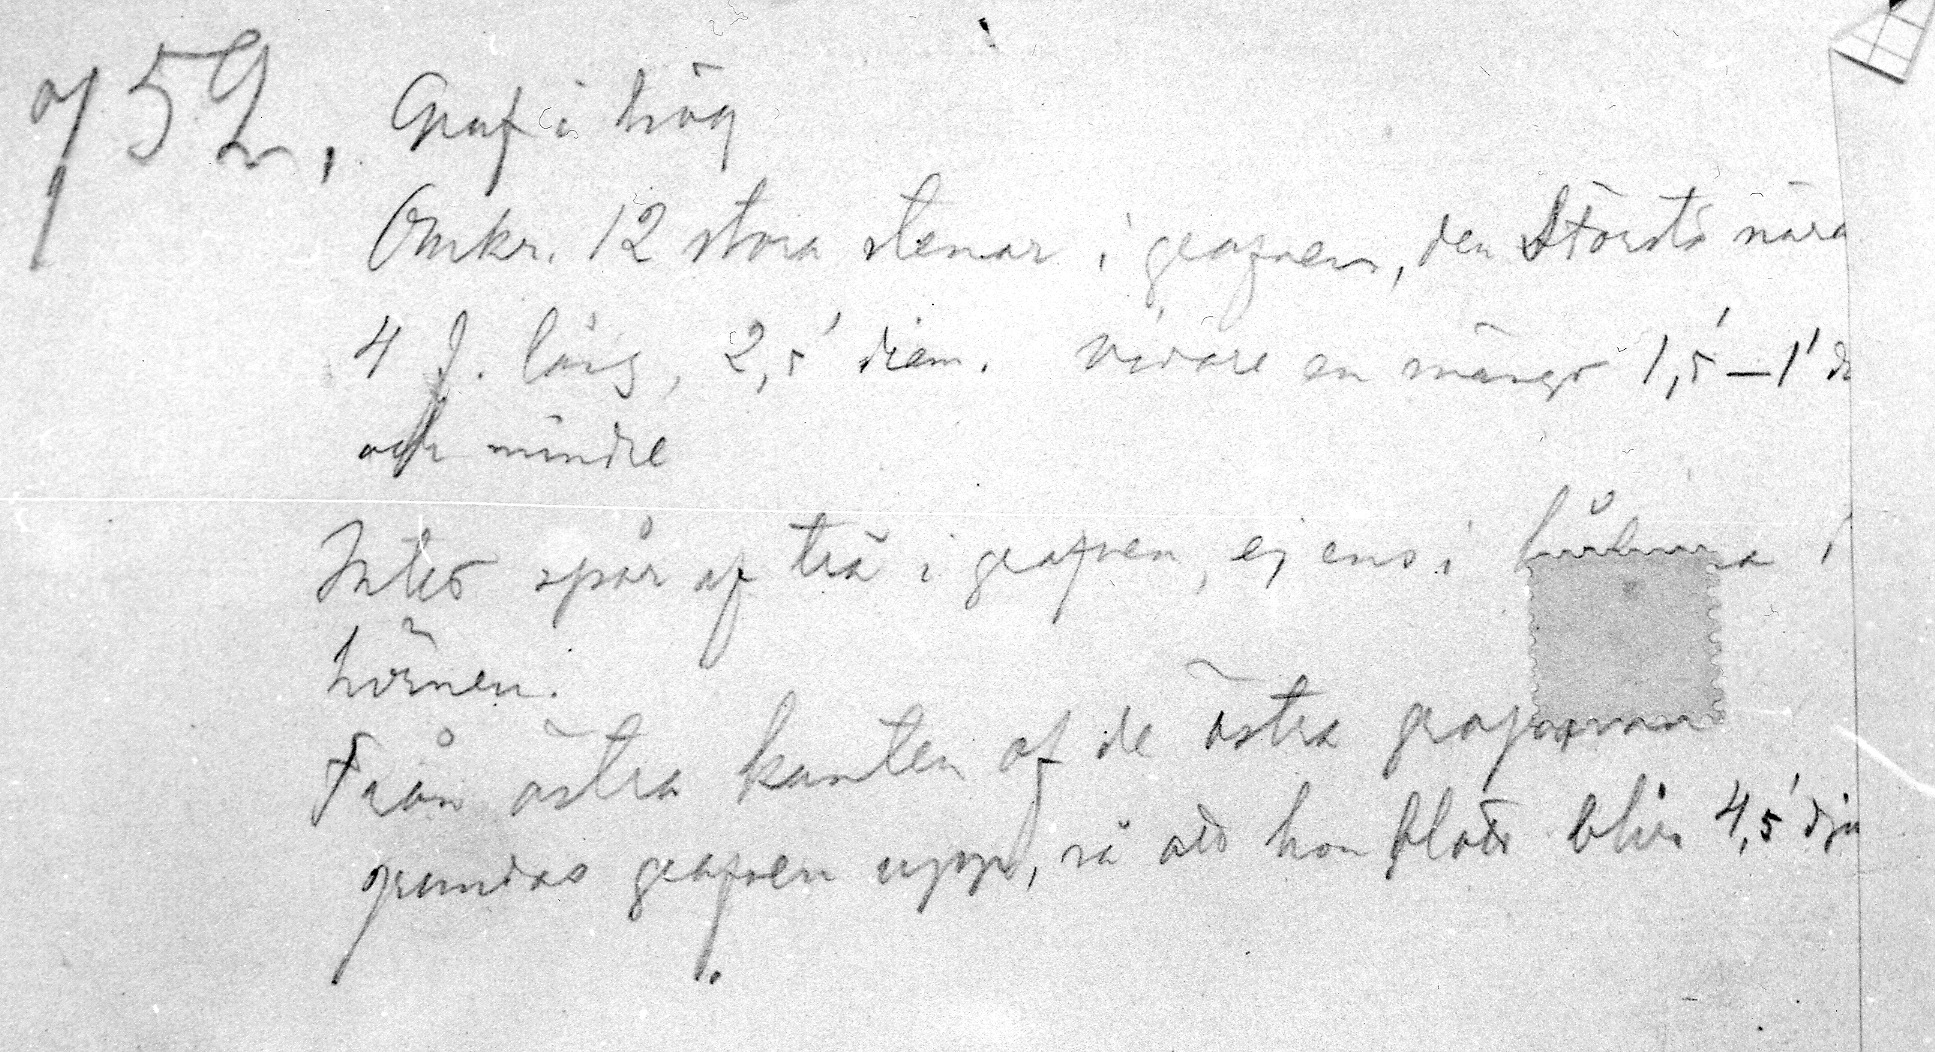 752, Graf i hög
Omkr. 12 stora stenar i grafven, den största nära
4 f. lång, 2,5' diam. vidare en mängd 1,5'–1' di
och mindre
Intet spår af trä i grafven, ej ens i i
hörnen.
Från östra kanten af de östra
grundas grafven upp, så att hon blott blir 4,5' dju